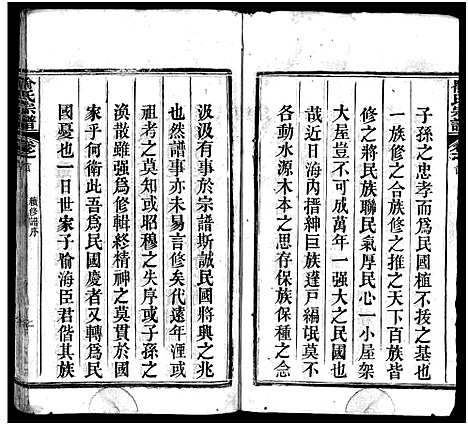 子孫之忠孝而爲民國植不拔之基也
一族修之合族修之推之天下百族皆
修之將民族聯民氣厚民心一小屋架
大屋豈不可成萬年一强大之民國也
哉近日海內搢紳巨族蓬戸編氓莫不
各動水源木本之思存保族保種之念
汲汲有事於宗譜斯誠民國將興之兆
也然譜事亦未易言修矣代遠年湮或
祖考之莫知或昭穆之失序或子孫之
渙散雖强爲修輯終精神之莫貫於國
家乎何衛此吾爲民國慶者又轉爲民
國憂也一日世家子喻海臣君偕其族
喻氏宗譜
續修譜序